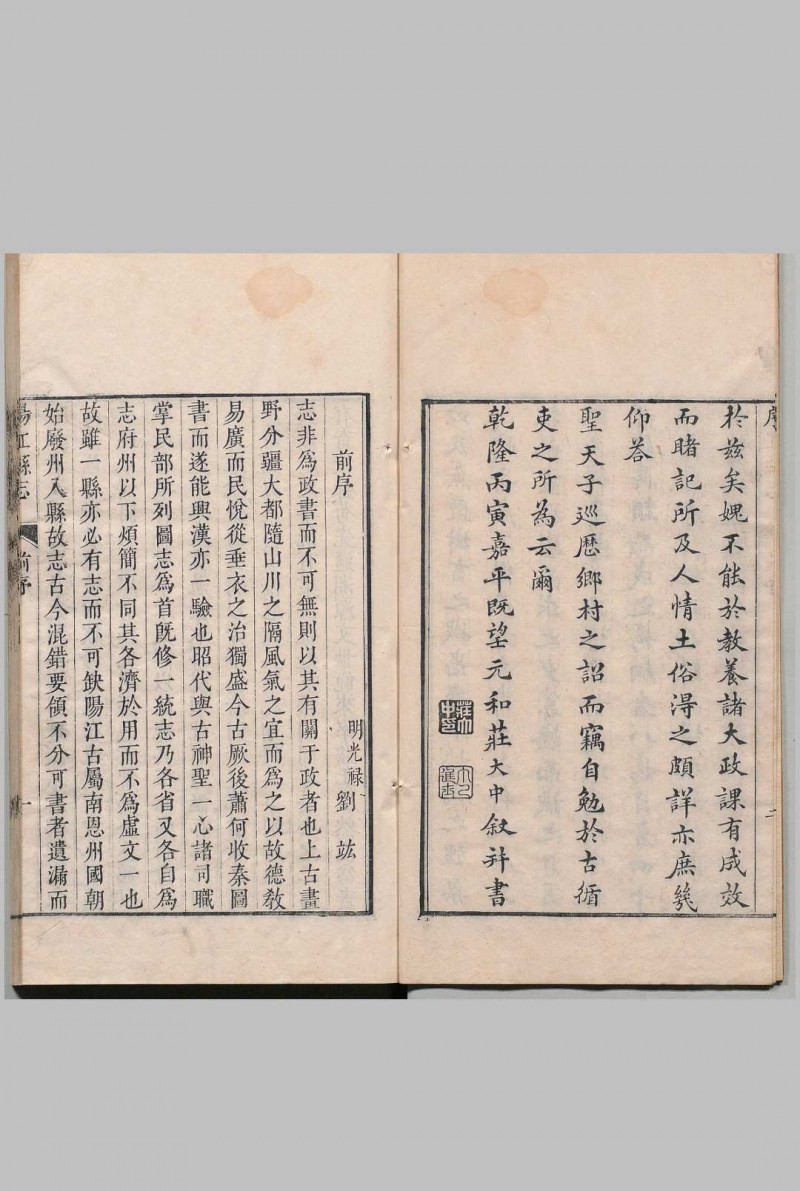 序
於茲矣媿不能於教養諸大政課有成效
而睹記所及人情土俗淂之頗詳亦庶幾
仰荅
聖天子巡歷鄉村之詔而竊自勉於古循
吏之所為云爾
乾隆丙寅嘉平既望元和莊大中叙并書
二
前序
明光禄劉竑
志非爲政書而不可無則以其有關于政者也上古畫
野分疆大都隨山川之隔風氣之宜而爲之以故德敎
易廣而民悅從垂衣之治獨盛今古厥後蕭何收秦圖
書而遂能興漢亦一驗也昭代與古神聖一心諸司職
掌民部所列圖志爲首旣修一統志乃各省又各自爲
志府州以下煩簡不同其各濟於用而不爲虛文一也
故雖一縣亦必有志而不可缺陽江古屬南恩州國朝
始廢州入縣故志古今混錯要領不分可書者遺漏而
陽江縣志
前序
一